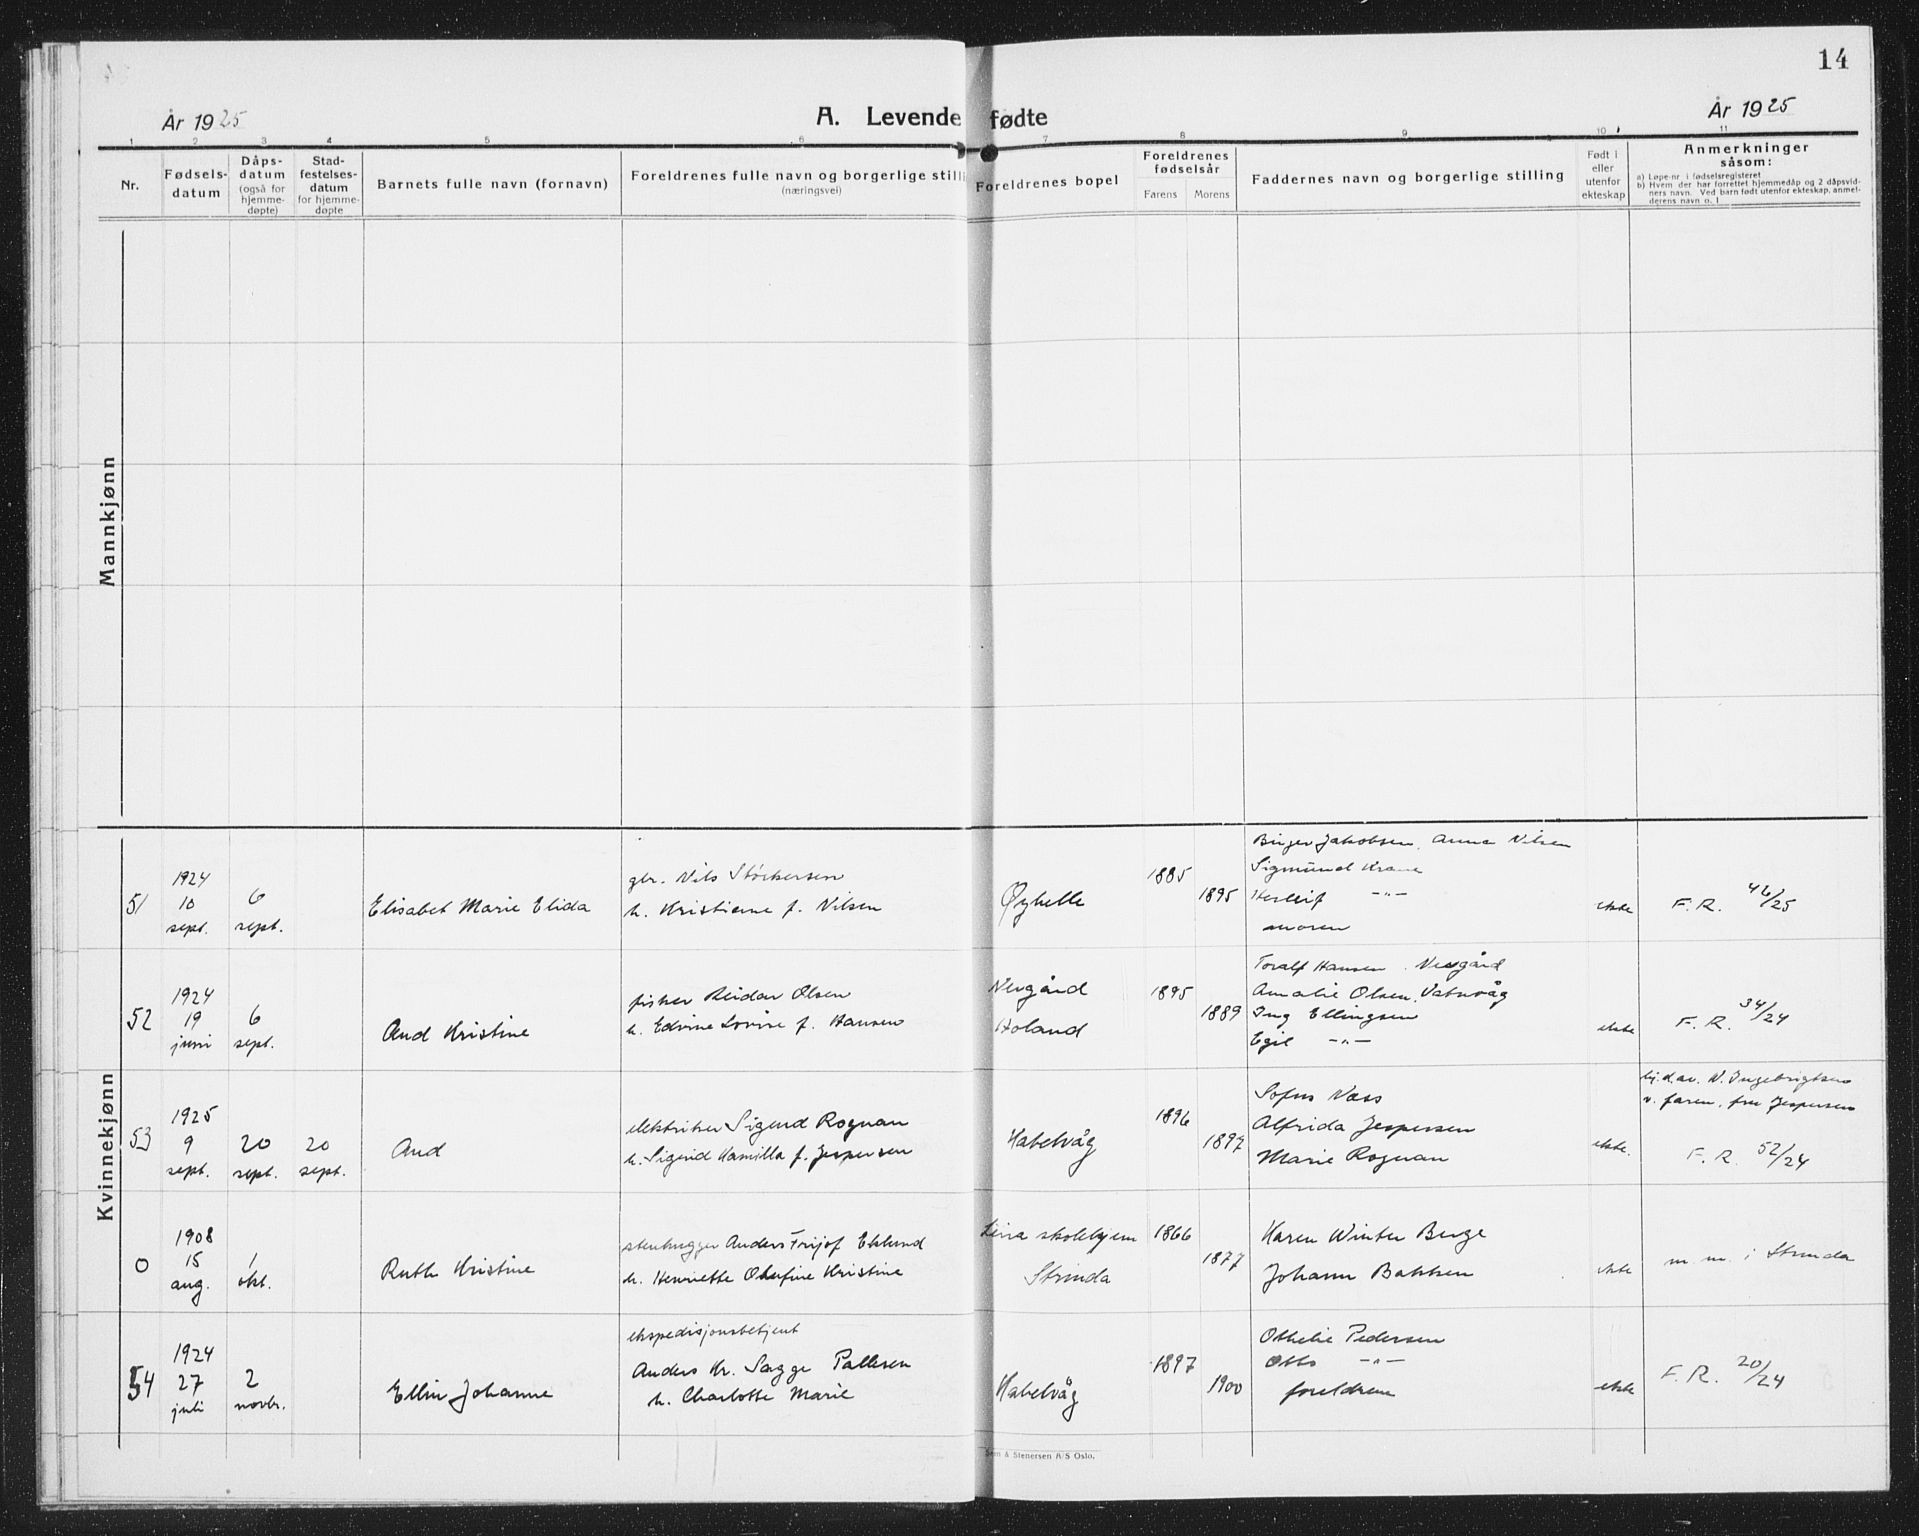 14
År 1925
A. Levende fødte
År 1925
1 2 3 4 5 6 7 8 9 10 11
Nr.
Fødsels-
datum
Dåps-
datum
(også for
hjemme-
døpte)
Stad-
festelses-
datum
for hjemme-
døpte
Barnets fulle navn (fornavn)
Foreldrenes fulle navn og borgerlige stilli
(næringsvei)
Foreldrenes bopel
Foreldrenes
fødselsår
Farens Morens
Faddernes navn og borgerlige stilling
Født i
eller
utenfor
ekteskap
Anmerkninger
såsom:
a) Løpe-nr i fødselsregisteret
b) Hvem der har forrettet hjemmedåp og 2 dåpsvid-
ners navn. Ved barn født utenfor ekteskap, anmel-
derens navn o. l
Mannkjønn
Kvinnekjønn
51
1924
10
sept.
6
sept.
Elisabet Marie Elida
gbr. Nils Størkersen
h. Kristianne f. Nilsen
Øyhelle
1885
1895
Birger Jakobsen, Anna Nilsen
Sigmund Krane
Herleif -"-
moren
ekte
F.R. 46/25
52
1924
19
juni
6
sept.
Aud Kristine
fisker Reidar Olsen
h. Edvine Lovise f. Hansen
Nevgård
Holand
1895
1889
Toralf Hansen, Nevgård
Amalie Olsen, Vatnvåg
Ing Ellingsen
Egil -"-
ekte
F.R. 34/24
53
1925
9
sept.
20
sept.
20
sept.
Aud
elektriker Sigurd Rognan
h. Sigrid Kamilla f. Jespersen
Habelvåg
1896
1897
Sofus Næss
Alfrida Jespersen
Marie Rognan
ekte.
hj.d. av N. Ingebrigtsen
v. faren, fru Jespersen
F.R. 52/24
0
1908
15
aug.
1
okt.
Ruth Kristine
stenhugger Anders Frijof Eklund
h. Henriette Olufine Kristine
Leira skolehjem
Strinda
1866
1877
Karen Winter Berge
Johann Bakken
ekte
m. m. i Strinda
54
1924
27
juli
2
novbr.
Ellin Johanne
ekspedisjonsbetjent
Anders Kr. Sagge Pallesen
h. Charlotte Marie
Habelvåg
1897
1900
Othelie Pedersen
Otto -"-
foreldrene
ekte
F.R. 20/24
Sem & Stenersen A/S Oslo.